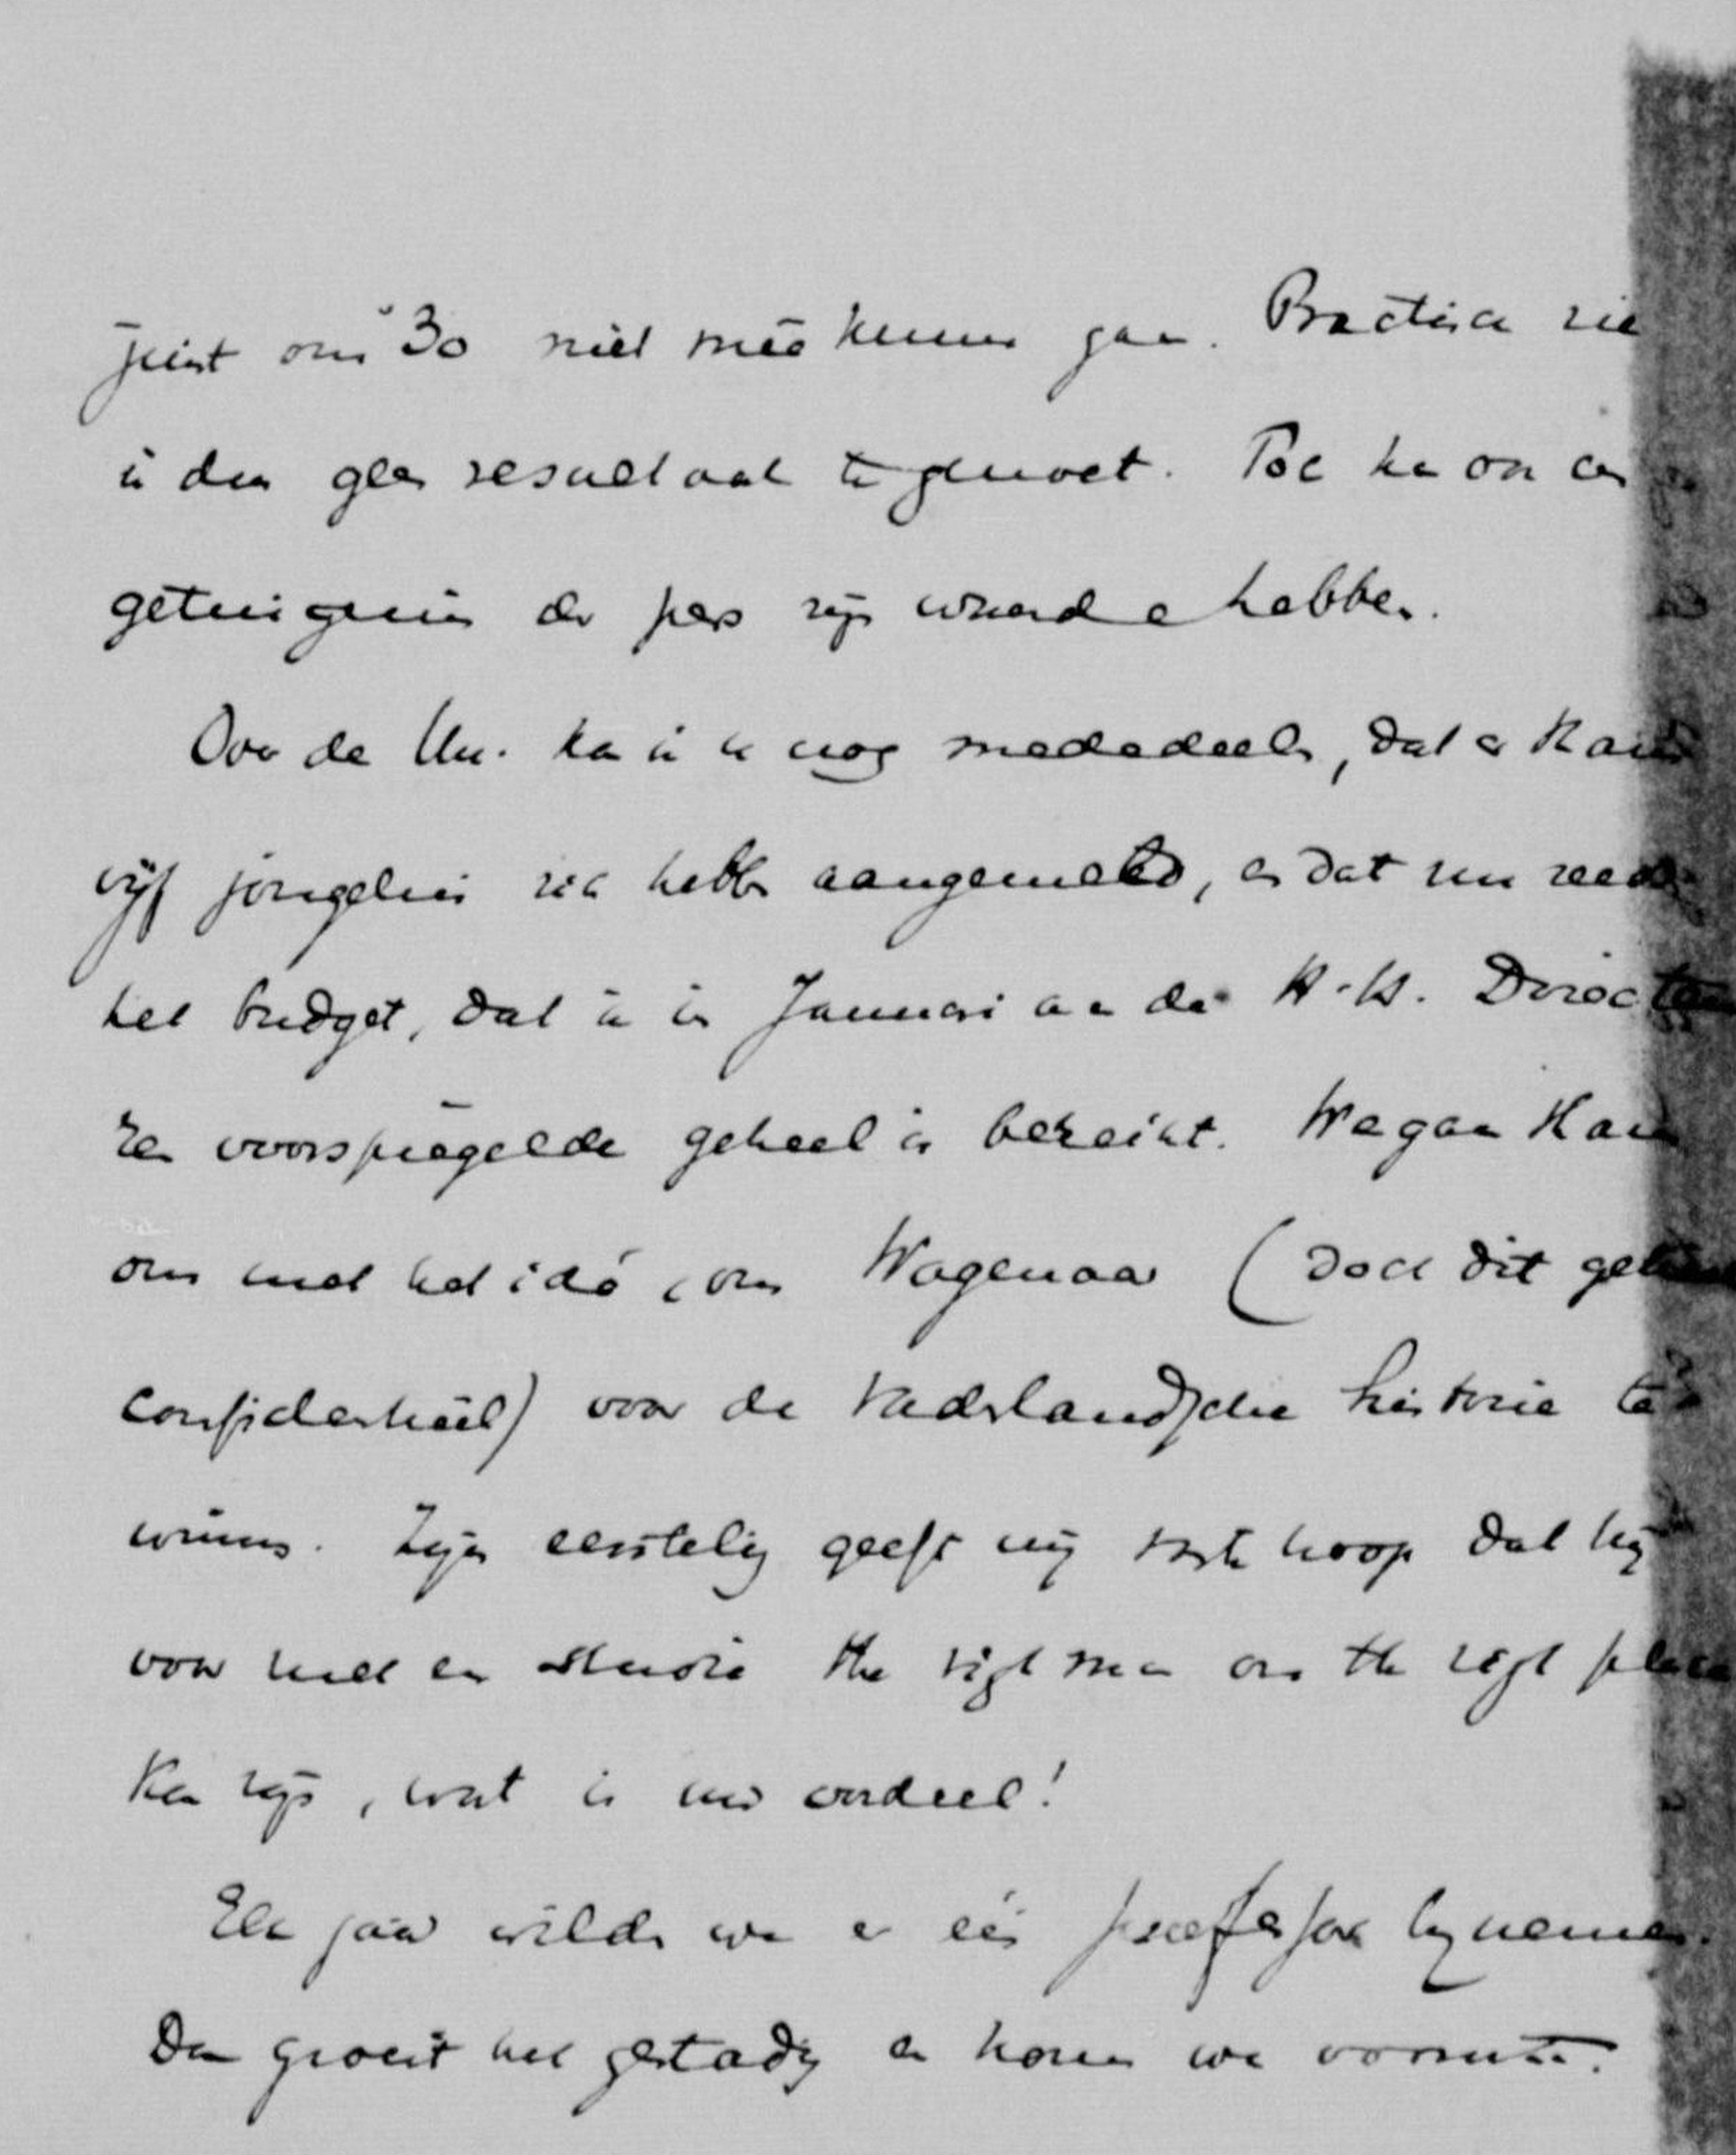 juist om 30 niet meê kunnen gaan. Practisch zie
ik den geen resultaat tegemoet. Toch kan een
getuigenis der pers zijn waarde hebben.
Over de Un. kan ik u nog mededeelen, dat er
vijf jongelui zich hebben aangemeld, en dat nu reeds
het budget, dat ik in Januari aan de H.H. Directeu
ren voorspiegelde geheel is bereikt. We gaan
om met het idé, om Wagenaar (doch dit
confidentieel) voor de vaderlandsche historie te
winnen. Zijn geeft mij vaste hoop dat hij
voor hield en studie the right man on the right place
kan zijn, wat is uw oordeel!
Elk jaar wilden we er één professor bijnemen.
Dan groeit het gestadig en komen we vooruit.